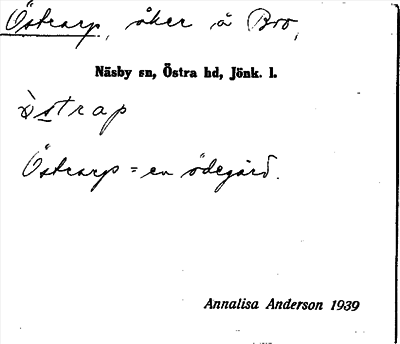 Östrarp, åker å Bro,
Näsby sn, Östra hd, Jönk. l.
òstrap
Östrarp = en ödegård.
Annalisa Anderson 1939